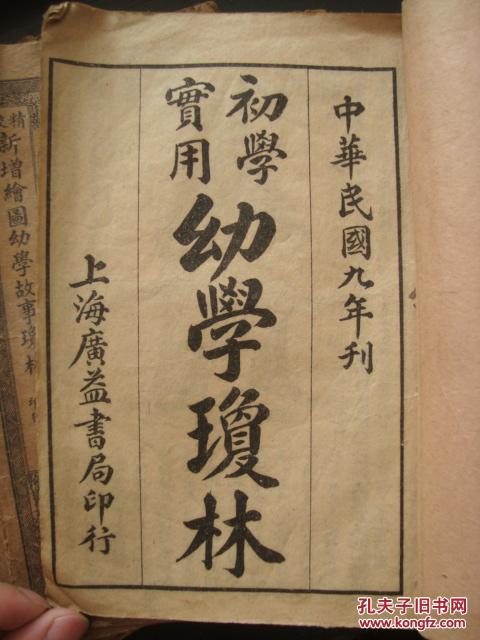 中華民國九年刊
初學
實用
幼學瓊林
上海廣益書局印行
精
新增繪圖幼學故事瓊林
孔夫子旧书网
www.kongfz.com